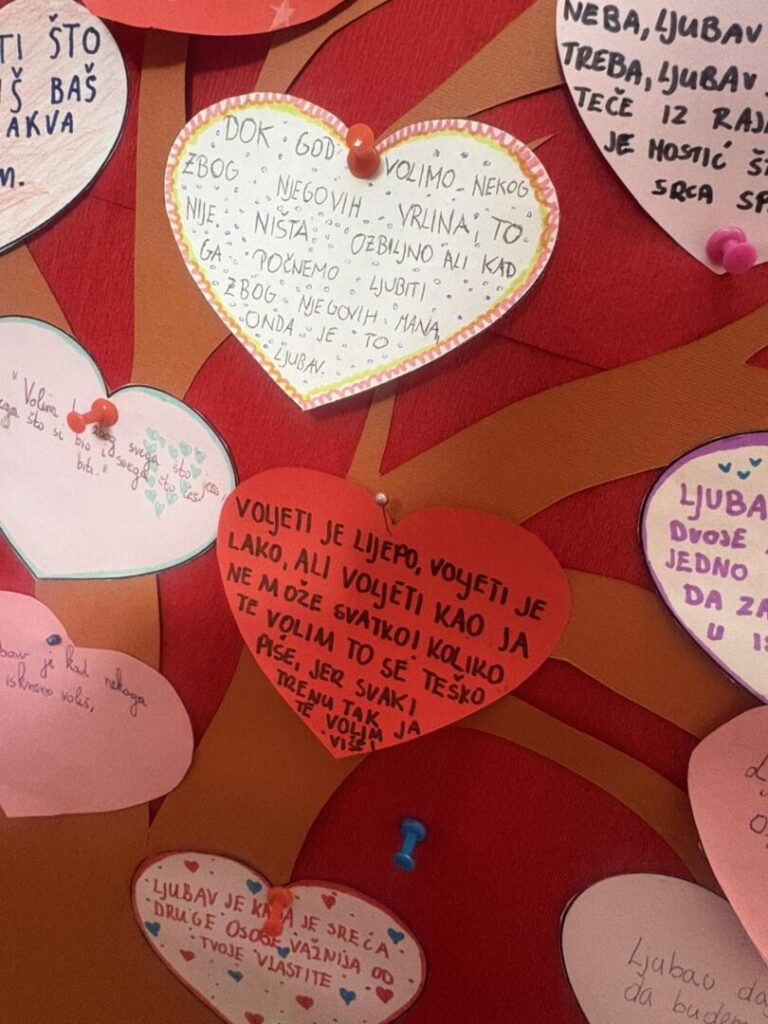 TI ŠTO
BAŠ
AKVA
NEBA, LJUBAV
TREBA, LJUBAV
TEČE IZ RAJA
JE MOSTIĆ
SRCA
DOK GOD VOLIMO NEKOG
ZBOG NJEGOVIH VRLINA, TO
NIJE NIŠTA OZBILJNO ALI KAD
GA POČNEMO LJUBITI
ZBOG NJEGOVIH MANA,
ONDA JE TO
LJUBAV.
"Volim zbog svega što jesi
svega što si bio i svega što ćeš
biti."
VOLJETI JE LIJEPO, VOLJETI JE
LAKO, ALI VOLJETI KAO JA
NE MOŽE SVATKO! KOLIKO
TE VOLIM TO SE TEŠKO
PIŠE, JER SVAKI
TRENUTAK JA
TE VOLIM
VIŠE!
LJUBA
DVOJE
JEDNO
DA ZA
U
je kad nekoga
iskreno voliš,
LJUBAV JE KADA JE SREĆA
DRUGE OSOBE VAŽNIJA OD
TVOJE VLASTITE
Ljubav da
da budem